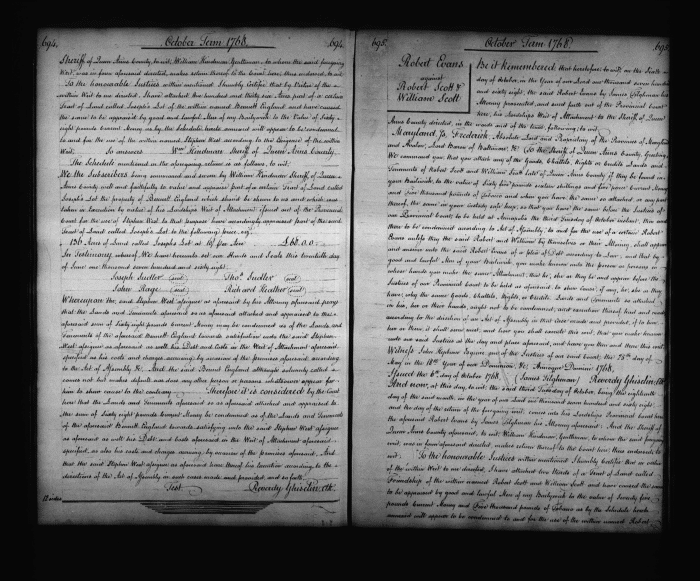 694.
October Term 1768.
694.
Sheriff of Queen Anns County, to wit, William Hindman Gentleman, to whom the said foregoing
Writ, was in form aforesaid directed, makes return thereof to the Court here, thus endorsed, to wit
To the honourable Justices within mentioned I humbly Certify that by Virtue of the
within Writ to me directed I have attached One hundred and thirty six Acres part of a certain
Tract of Land called Joseph's Lot of the within named Bennett England and have caused
the same to be appraised by good and lawful Men of my Bailywick to the Value of Sixty
eight pounds Current Money as by the Schedule hereto annexed will appear to be condemned
to and for the use of the within named Stephen West according to the Exigence of the within
Writ. So answers Wm. Hindman Sheriff of Queen Anns County
The Schedule mentioned in the aforegoing return is as follows, to wit,
We the Subscribers being summoned and sworn by William Hindman Sheriff of Queen
Anns County well and faithfully to value and appraise part of a certain Tract of Land called
Joseph's Lot the property of Bennett England which should be shewn to us and which was
taken in Execution by virtue of his Lordships Writ of Attachment issued out of the Provincial
Court for the use of Stephen West do that purpose have accordingly appraised part of the said
Tract of Land called Joseph's Lot to the following price, viz.
136 Acres of Land called Joseph's Lot at 10/. per Acre £68.0.0.
In Testimony whereof We have hereunto set our Hands and Seals this twentieth day
of June one thousand seven hundred and sixty eight.
Joseph Sudler (seal) Thos. Sudler (seal)
John Hage (seal) Richard Heather (seal)
Whereupon the said Stephen West assignee as aforesaid by his Attorney aforesaid prays
that the Lands and Tenements aforesaid so as aforesaid attached and appraised to the
aforesaid sum of sixty eight pounds Current Money may be condemned as of the Lands and
Tenements of the aforesaid Bennett England towards satisfaction unto the said Stephen
West assignee as aforesaid as well his Debt and Costs in the Writ of Attachment aforesaid
specified as also his costs and charges accruing by occasion of the premises aforesaid, according
to the Act of Assembly &c. And the said Bennett England although solemnly called
comes not but makes default nor does any other person or persons whatsoever appear for
him to shew cause to the contrary Therefore it is considered by the Court
here that the Lands and Tenements aforesaid so as aforesaid attached and appraised to
the sum of Sixty eight pounds Current Money be condemned as of the Lands and Tenements
of the aforesaid Bennett England towards satisfying unto the said Stephen West assignee
as aforesaid as well his Debt and Costs aforesaid in the Writ of Attachment aforesaid
specified, as also his costs and charges accruing by occasion of the premises aforesaid, And
that the said Stephen West assignee as aforesaid have thereof his Execution according to the
directions of the Act of Assembly in such cases made and provided, and so forth.
Test Reverdy Ghiselin Clk.
695.
October Term 1768.
695.
Robert Evans
against
Robert Scott &
William Scott
Be it Remembered that heretofore, to wit, on the Sixth
day of October, in the Year of our Lord one thousand seven hundred
and sixty eight, the said Robert Evans by James Tilghman his
Attorney prosecuted, and sued forth out of the Provincial Court
here, his Lordships Writ of Attachment to the Sheriff of Queen
Anns County directed, in the words and of the tenor following; to wit
Maryland Ss. Frederick, Absolute Lord and Proprietary of the Provinces of Maryland
and Avalon, Lord Baron of Baltimore, &c. To the Sheriff of Queen Anns County, Greeting.
We command you, that you attach any of the Goods, Chattels, Rights or Credits Lands and
Tenements of Robert Scott and William Scott late of Queen Anns County if they be found in
your Bailywick, to the value of Sixty five pounds sixteen shillings and four pence Current Money
and five thousand pounds of Tobacco and when you have the same so attached, or any part
thereof, the same in your Custody safe keep, so that you have the same before the Justices of
our Provincial Court, to be held at Annapolis the third Tuesday of October instant, then and
there to be condemned according to Act of Assembly, to and for the use of a certain Robert
Evans unless they the said Robert and William by themselves or their Attorney shall appear
and answer unto the said Robert Evans of a plea of Debt according to Law, and that by
good and lawful Men of your Bailywick, you make known unto the person or persons in
whose hands you make the same Attachment, that he, she or they be and appear before the
Justices of our Provincial Court to be held as aforesaid, to shew Cause, if any, he, she or they
have, why the same Goods, Chattels, Rights, or Credits, Lands and Tenements so attached
in his, her or their hands, ought not to be condemned, and execution thereof had and made
according to the direction of an Act of Assembly in that Case made and provided, if to him,
her or them, it shall seem meet, and how you shall execute this writ, that you make known
unto our said Justices at the day and place aforesaid, and have you then and there this writ.
Witness John Hepburn Esquire, one of the Justices of our said Court, the 17th. day of
May in the 18th. Year of our Dominion, &c. Annoque Domini 1768.
Issued the 6th. day of October 1768. (James Tilghman) Reverdy Ghiselin Clk.
And now, at this day, to wit, the said third Tuesday of October, being the eighteenth
day of the said month, in the year of our Lord one thousand seven hundred and sixty eight
and the day of the return of the foregoing writ, comes into his Lordships Provincial Court here
the aforesaid Robert Evans by James Tilghman his Attorney aforesaid: And the Sheriff of
Queen Anns County aforesaid, to wit, William Hindman, Gentleman, to whom the said foregoing
writ, was in form aforesaid directed, makes return thereof to the Court here, thus endorsed, to
wit. To the honourable Justices within mentioned I humbly Certify that in virtue
of the within Writ to me directed, I have attached two Tracts of Land called
Friendship of the within named Robert Scott and William Scott and have caused the same
to be appraised by good and lawful Men of my Bailywick to the value of Seventy five
pounds Current Money and five thousand pounds of Tobacco as by the Schedule hereto
annexed will appear to be condemned to and for the use of the within named Robert